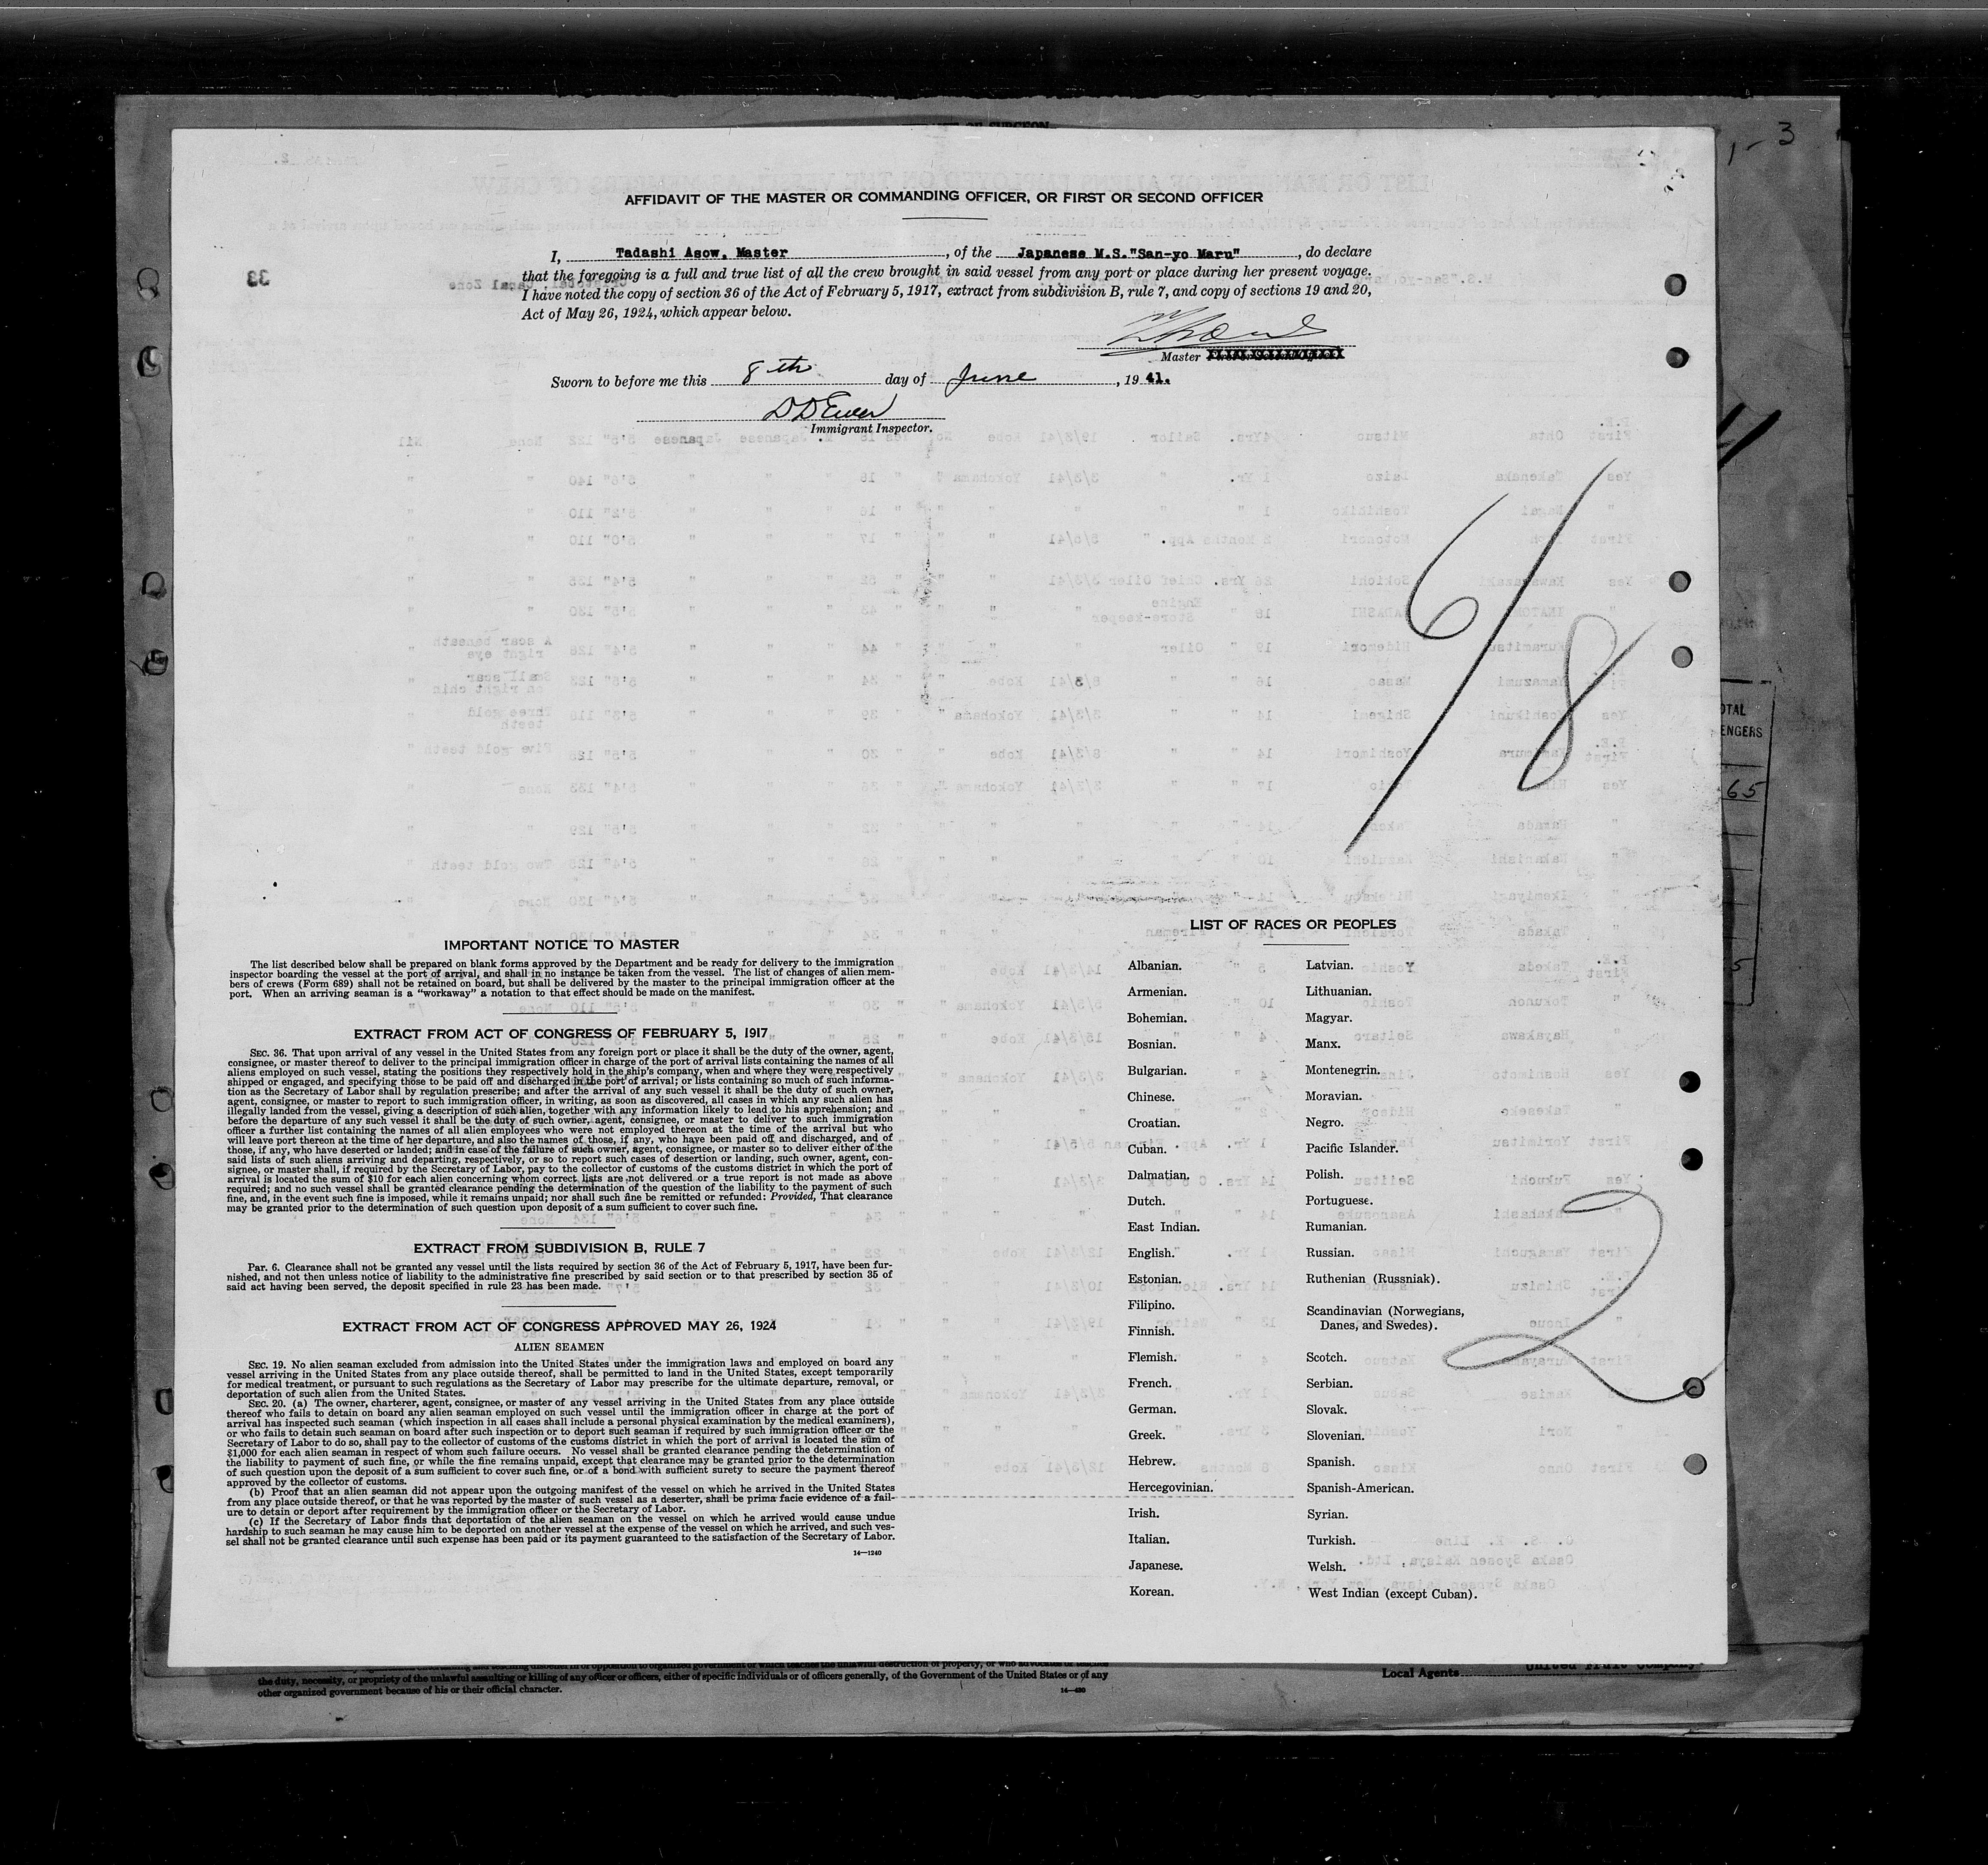 1-3
AFFIDAVIT OF THE MASTER OR COMMANDING OFFICER, OR FIRST OR SECOND OFFICER
I, Tadashi Asow, Master, of the Japanese M.S."San-yo Maru", do declare
that the foregoing is a full and true list of all the crew brought in said vessel from any port or place during her present voyage.
I have noted the copy of section 36 of the Act of February 5, 1917, extract from subdivision B, rule 7, and copy of sections 19 and 20,
Act of May 26, 1924, which appear below.
Master
Sworn to before me this 8th day of June, 1941.
Immigrant Inspector.
6/8
2
IMPORTANT NOTICE TO MASTER
The list described below shall be prepared on blank forms approved by the Department and be ready for delivery to the immigration
inspector boarding the vessel at the port of arrival, and shall in no instance be taken from the vessel. The list of changes of alien mem-
bers of crews (Form 689) shall not be retained on board, but shall be delivered by the master to the principal immigration officer at the
port. When an arriving seaman is a "workaway" a notation to that effect should be made on the manifest.
EXTRACT FROM ACT OF CONGRESS OF FEBRUARY 5, 1917
SEC. 36. That upon arrival of any vessel in the United States from any foreign port or place it shall be the duty of the owner, agent,
consignee, or master thereof to deliver to the principal immigration officer in charge of the port of arrival lists containing the names of all
aliens employed on such vessel, stating the positions they respectively hold in the ship's company, when and where they were respectively
shipped or engaged, and specifying those to be paid off and discharged in the port of arrival; or lists containing so much of such informa-
tion as the Secretary of Labor shall by regulation prescribe; and after the arrival of any such vessel it shall be the duty of such owner,
agent, consignee, or master to report to such immigration officer, in writing, as soon as discovered, all cases in which any such alien has
illegally landed from the vessel, giving a description of such alien, together with any information likely to lead to his apprehension; and
before the departure of any such vessel it shall be the duty of such owner, agent, consignee, or master to deliver to such immigration
officer a further list containing the names of all alien employees who were not employed thereon at the time of the arrival but who
will leave port thereon at the time of her departure, and also the names of those, if any, who have been paid off and discharged, and of
those, if any, who have deserted or landed; and in case of the failure of such owner, agent, consignee, or master so to deliver either of the
said lists of such aliens arriving and departing, respectively, or so to report such cases of desertion or landing, such owner, agent, con-
signee, or master shall, if required by the Secretary of Labor, pay to the collector of customs of the customs district in which the port of
arrival is located the sum of $10 for each alien concerning whom correct lists are not delivered or a true report is not made as above
required; and no such vessel shall be granted clearance pending the determination of the question of the liability to the payment of such
fine, and, in the event such fine is imposed, while it remains unpaid; nor shall such fine be remitted or refunded: Provided, That clearance
may be granted prior to the determination of such question upon deposit of a sum sufficient to cover such fine.
EXTRACT FROM SUBDIVISION B, RULE 7
PAR. 6. Clearance shall not be granted any vessel until the lists required by section 36 of the Act of February 5, 1917, have been fur-
nished, and not then unless notice of liability to the administrative fine prescribed by said section or to that prescribed by section 35 of
said act having been served, the deposit specified in rule 23 has been made.
EXTRACT FROM ACT OF CONGRESS APPROVED MAY 26, 1924
ALIEN SEAMEN
SEC. 19. No alien seaman excluded from admission into the United States under the immigration laws and employed on board any
vessel arriving in the United States from any place outside thereof, shall be permitted to land in the United States, except temporarily
for medical treatment, or pursuant to such regulations as the Secretary of Labor may prescribe for the ultimate departure, removal, or
deportation of such alien from the United States.
SEC. 20. (a) The owner, charterer, agent, consignee, or master of any vessel arriving in the United States from any place outside
thereof who fails to detain on board any alien seaman employed on such vessel until the immigration officer in charge at the port of
arrival has inspected such seaman (which inspection in all cases shall include a personal physical examination by the medical examiners),
or who fails to detain such seaman on board after such inspection or to deport such seaman if required by such immigration officer or the
Secretary of Labor to do so, shall pay to the collector of customs of the customs district in which the port of arrival is located the sum of
$1,000 for each alien seaman in respect of whom such failure occurs. No vessel shall be granted clearance pending the determination of
the liability to payment of such fine, or while the fine remains unpaid, except that clearance may be granted prior to the determination
of such question upon the deposit of a sum sufficient to cover such fine, or of a bond with sufficient surety to secure the payment thereof
approved by the collector of customs.
(b) Proof that an alien seaman did not appear upon the outgoing manifest of the vessel on which he arrived in the United States
from any place outside thereof, or that he was reported by the master of such vessel as a deserter, shall be prima facie evidence of a fail-
ure to detain or deport after requirement by the immigration officer or the Secretary of Labor.
(c) If the Secretary of Labor finds that deportation of the alien seaman on the vessel on which he arrived would cause undue
hardship to such seaman he may cause him to be deported on another vessel at the expense of the vessel on which he arrived, and such ves-
sel shall not be granted clearance until such expense has been paid or its payment guaranteed to the satisfaction of the Secretary of Labor.
14—1240
LIST OF RACES OR PEOPLES
Albanian.
Armenian.
Bohemian.
Bosnian.
Bulgarian.
Chinese.
Croatian.
Cuban.
Dalmatian.
Dutch.
East Indian.
English.
Estonian.
Filipino.
Finnish.
Flemish.
French.
German.
Greek.
Hebrew.
Hercegovinian.
Irish.
Italian.
Japanese.
Korean.
Latvian.
Lithuanian.
Magyar.
Manx.
Montenegrin.
Moravian.
Negro.
Pacific Islander.
Polish.
Portuguese.
Rumanian.
Russian.
Ruthenian (Russniak).
Scandinavian (Norwegians,
Danes, and Swedes).
Scotch.
Serbian.
Slovak.
Slovenian.
Spanish.
Spanish-American.
Syrian.
Turkish.
Welsh.
West Indian (except Cuban).
65
5
the duty, necessity, or propriety of the unlawful assaulting or killing of any officer or officers, either of specific individuals or of officers generally, of the Government of the United States or of any
other organized government because of his or their official character.
Local Agents United Fruit Company